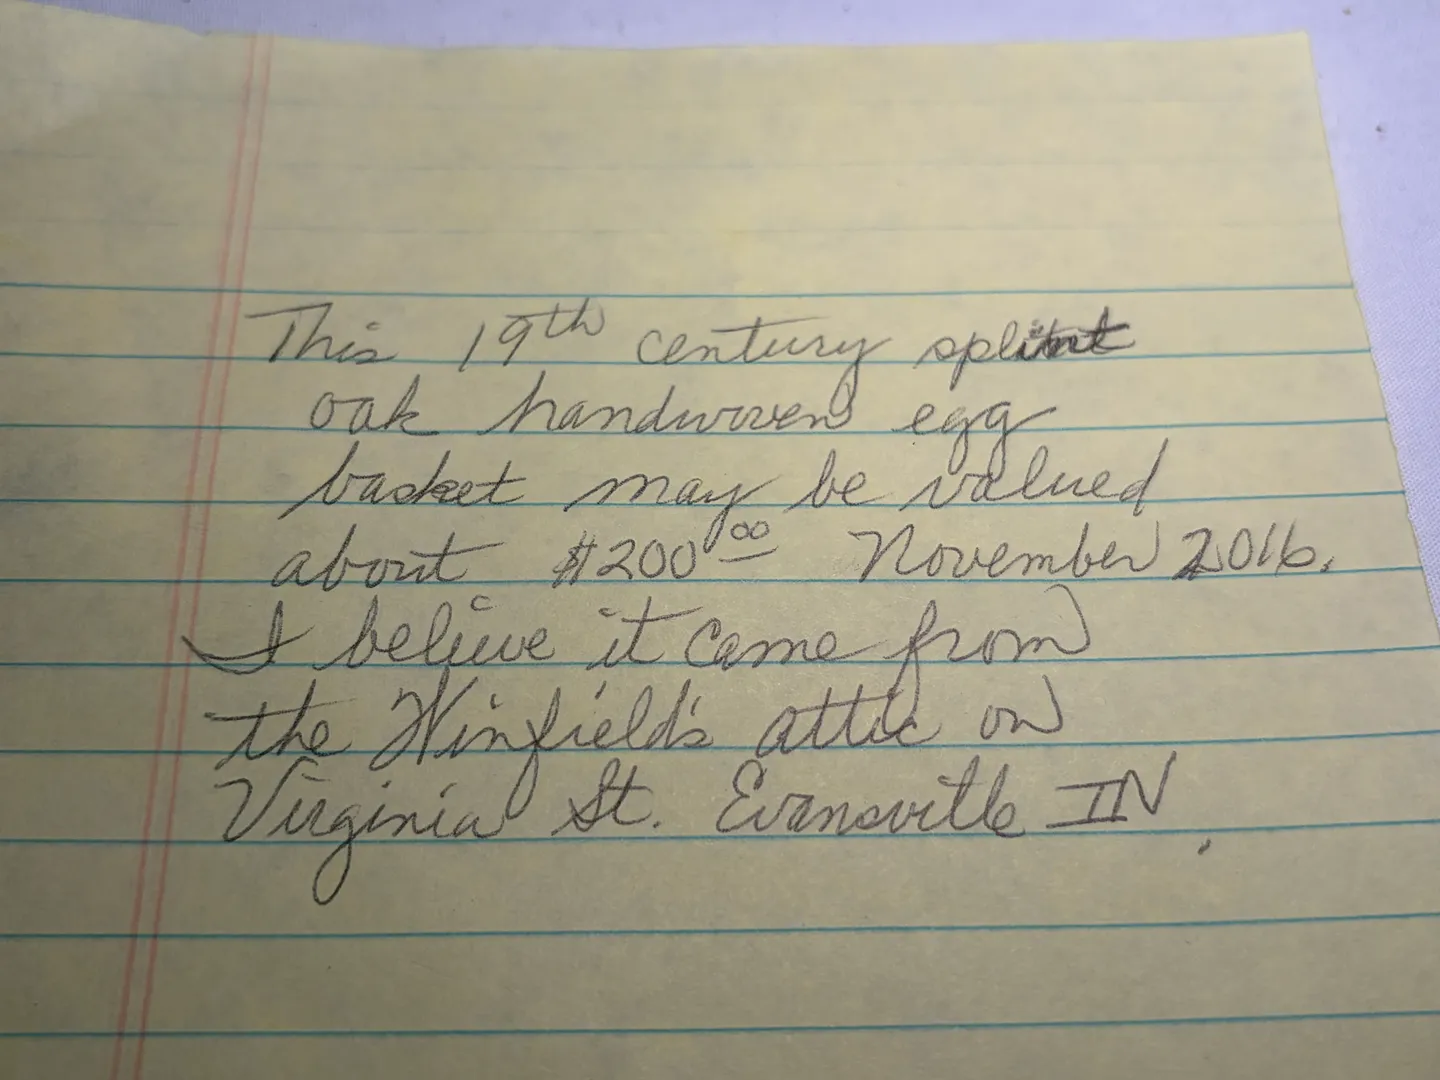 This 19th century splint
oak handwoven egg
basket may be valued
about $200.00 November 2016.
I believe it came from
the Winfield's attic on
Virginia St. Evansville IN.